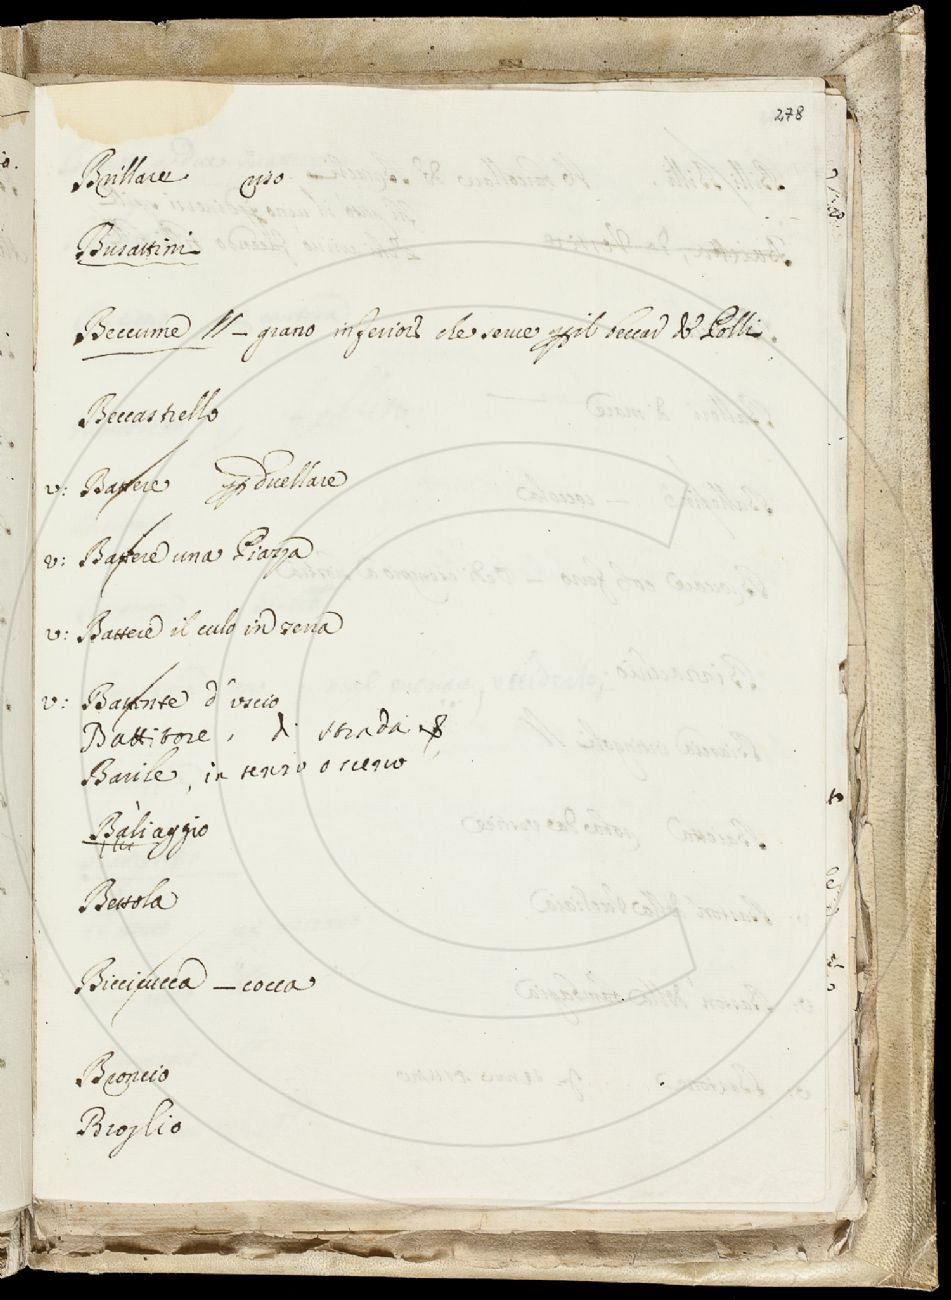 278
Brillare uso
Busattini
Beccume // - grano inferiore che serve p il beccar de Polli.
Beccastrello
v: Battere p duellare
v: Battere una Piazza
v: Battere il culo in terra
v: Battente d'uscio
Battitore, di strada
Barile, in senso osceno
Baliaggio
Bettola
Biccicucca - cocca
Broncio
Broglio